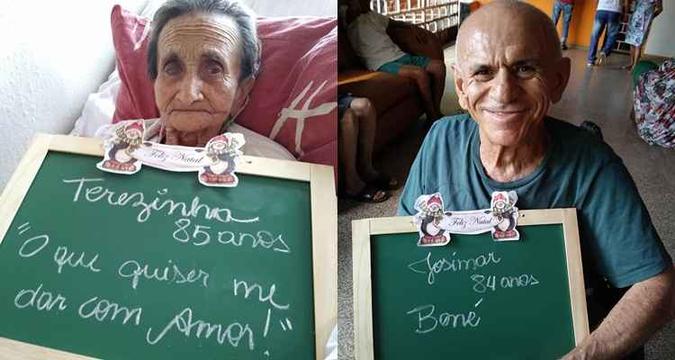 Feliz Natal
Terezinha
85 anos
"O que quiser me
dar com Amor!"
Feliz Natal
Josimar
84 anos
Boné